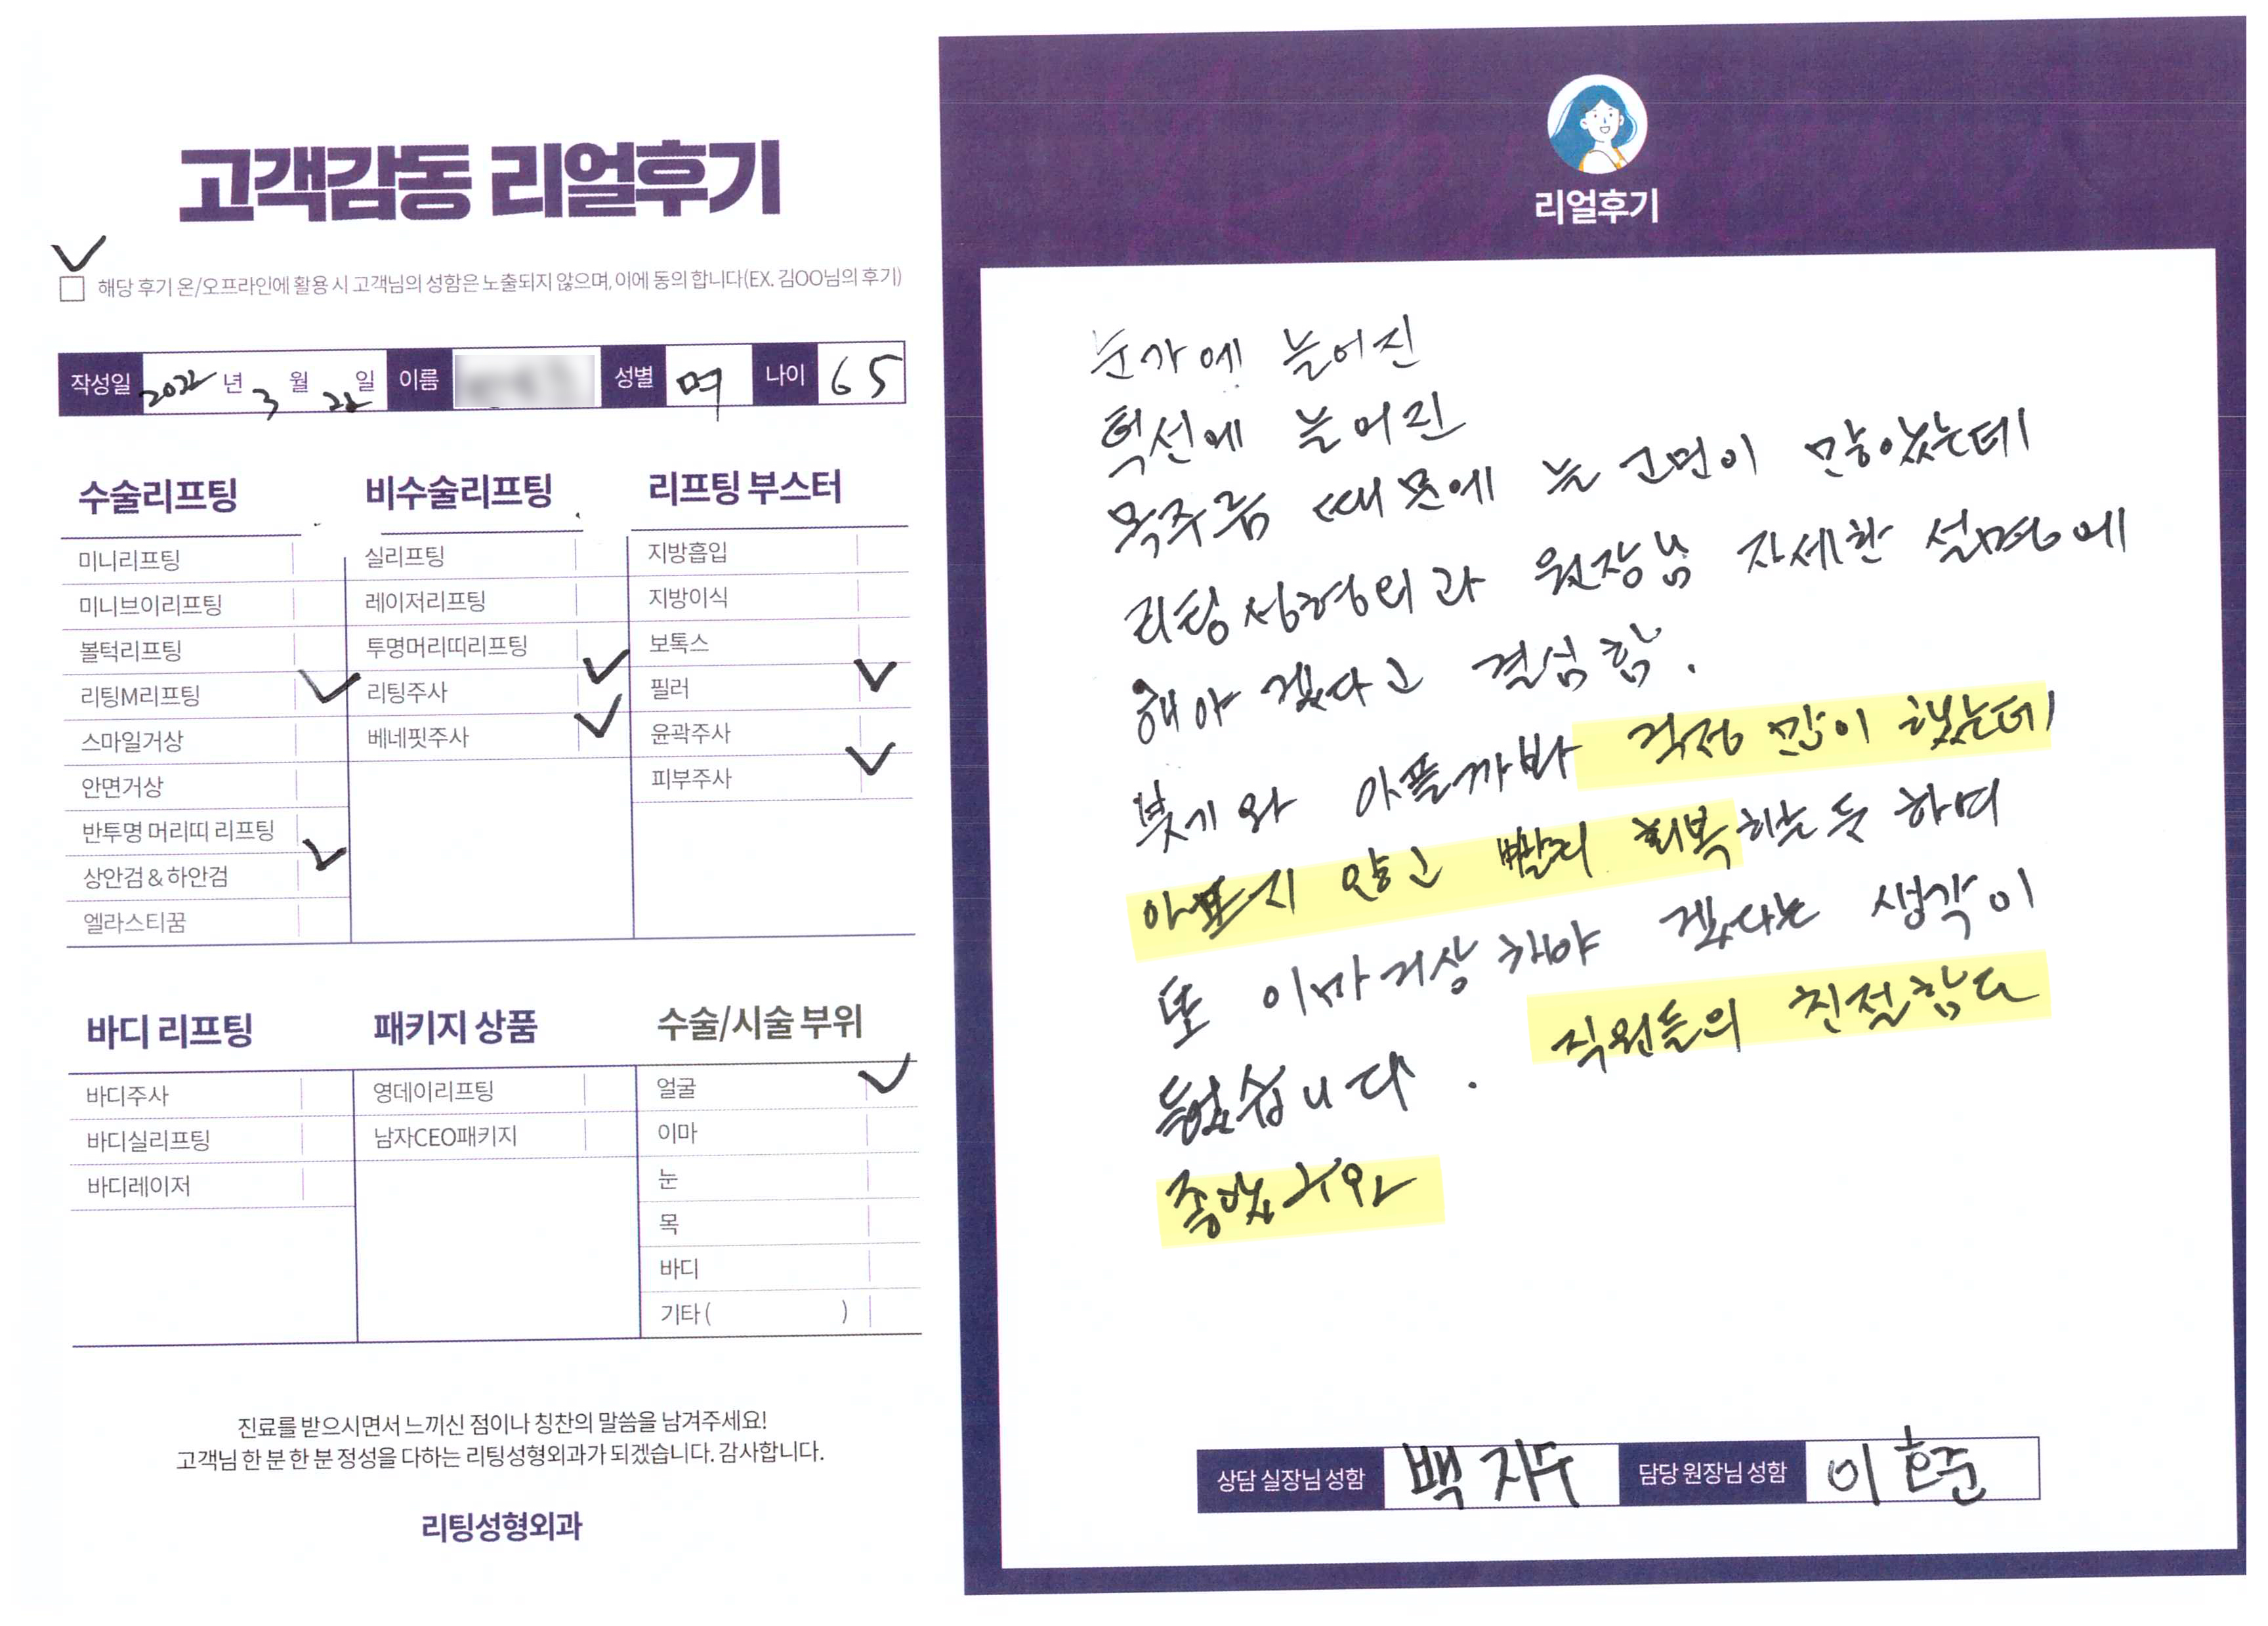 고객감동 리얼후기
해당 후기 온/오프라인에 활용 시 고객님의 성함은 노출되지 않으며, 이에 동의 합니다(EX. 김OO님의 후기)
작성일 2022 년 3 월 22 일 이름 성별 여 나이 65
수술리프팅
미니리프팅
미니브이리프팅
볼턱리프팅
리팅M리프팅
스마일거상
안면거상
반투명 머리띠 리프팅
상안검 & 하안검
엘라스티꿈
비수술리프팅
실리프팅
레이저리프팅
투명머리띠리프팅
리팅주사
베네핏주사
리프팅 부스터
지방흡입
지방이식
보톡스
필러
윤곽주사
피부주사
바디 리프팅
바디주사
바디실리프팅
바디레이저
패키지 상품
영데이리프팅
남자CEO패키지
수술/시술 부위
얼굴
이마
눈
목
바디
기타 ( )
진료를 받으시면서 느끼신 점이나 칭찬의 말씀을 남겨주세요!
고객님 한 분 한 분 정성을 다하는 리팅성형외과가 되겠습니다. 감사합니다.
리팅성형외과
리얼후기
눈가에 늘어진
턱선에 늘어진
목주름 때문에 늘 고민이 많았는데
리팅성형외과 원장님 자세한 설명에
해야 겠다고 결심함.
붓기와 아플까봐 걱정 많이 했는데
아프지 않고 빨리 회복하는 듯 하며
또 이마거상해야 겠다는 생각이
들었습니다. 직원들의 친절함도
좋았
상담 실장님 성함 백지수 담당 원장님 성함 이호준